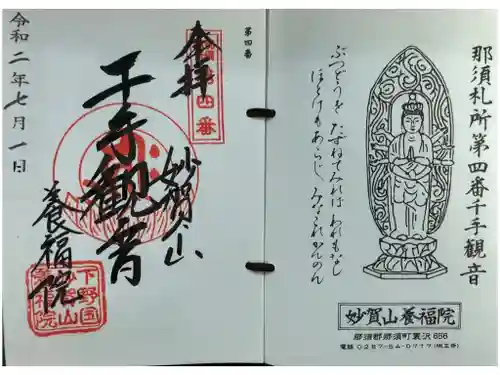 那須札所第四番千手観音
ぶつどうを たずねてみれば われもなし
ほとけもあらじ みなみれかんのん
妙賀山養福院
那須郡那須町寄沢 856
電話 0287-54-0717
第四番
奉拝
第四番
妙賀山
千手観音
養福院
下野国
令和二年七月一日